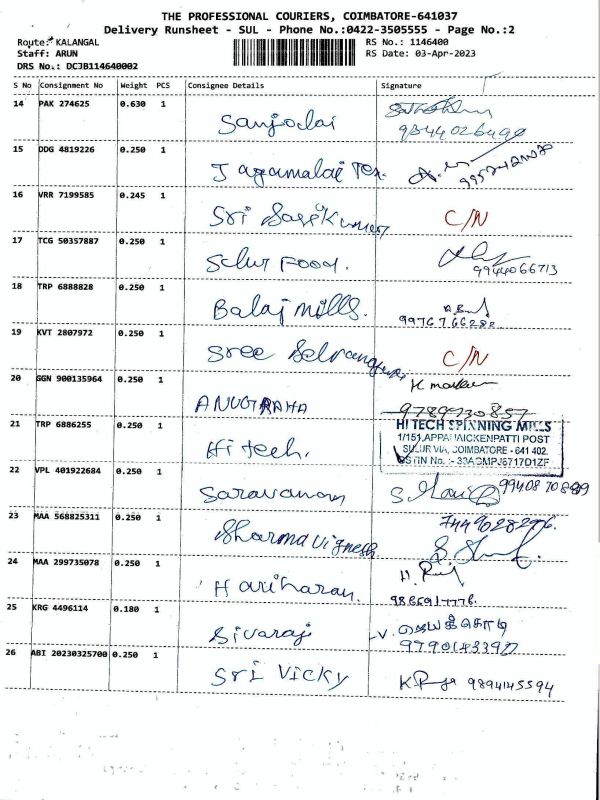 THE PROFESSIONAL COURIERS, COIMBATORE-641037
Delivery Runsheet - SUL - Phone No.:0422-3505555 - Page No.:2
Route: KALANGAL RS No.: 1146400
Staff: ARUN RS Date: 03-Apr-2023
DRS No.: DCJB114640002
S No Consignment No Weight PCS Consignee Details Signature
14 PAK 274625 0.630 1
Sanjodai
9344026490
15 DDG 4819226 0.250 1
Jagamalai Tex.
16 VRR 7199585 0.245 1
Sri Sasikumar C/N
17 TCG 50357887 0.250 1
Sulur Food.
9944066713
18 TRP 6888828 0.250 1
Balaj mills.
9976766282
19 KVT 2807972 0.250 1
Sree C/N
20 GGN 900135964 0.250 1
ANUGRAHA
9789730857
21 TRP 6886255 0.250 1
HI TECH SPINNING MILLS
1/151, APPANAICKENPATTI POST
SULUR VIA, COIMBATORE - 641 402.
GSTIN No. :-
Hitech.
22 VPL 401922684 0.250 1
Saravanan
23 MAA 568825311 0.250 1
Sharma Vignesh
24 MAA 299735078 0.250 1
Hariharan
25 KRG 4496114 0.180 1
Sivaraj
V. ஜெயக்கொடி
26 ABI 20230325700 0.250 1
Sri Vicky
9894145594